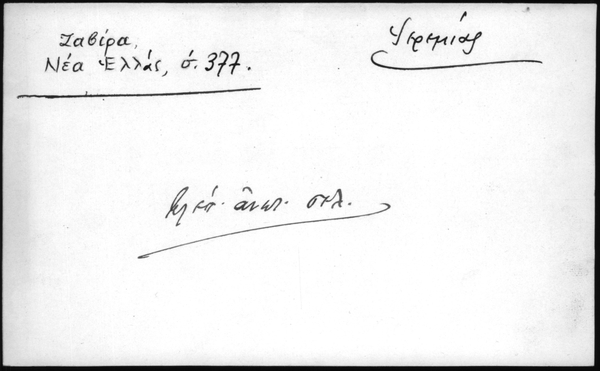 Ζαβίρα,
Νέα Ἑλλάς, σ. 377.
Ἱερεμίας
βλέπ. ἄνωτ. σελ.